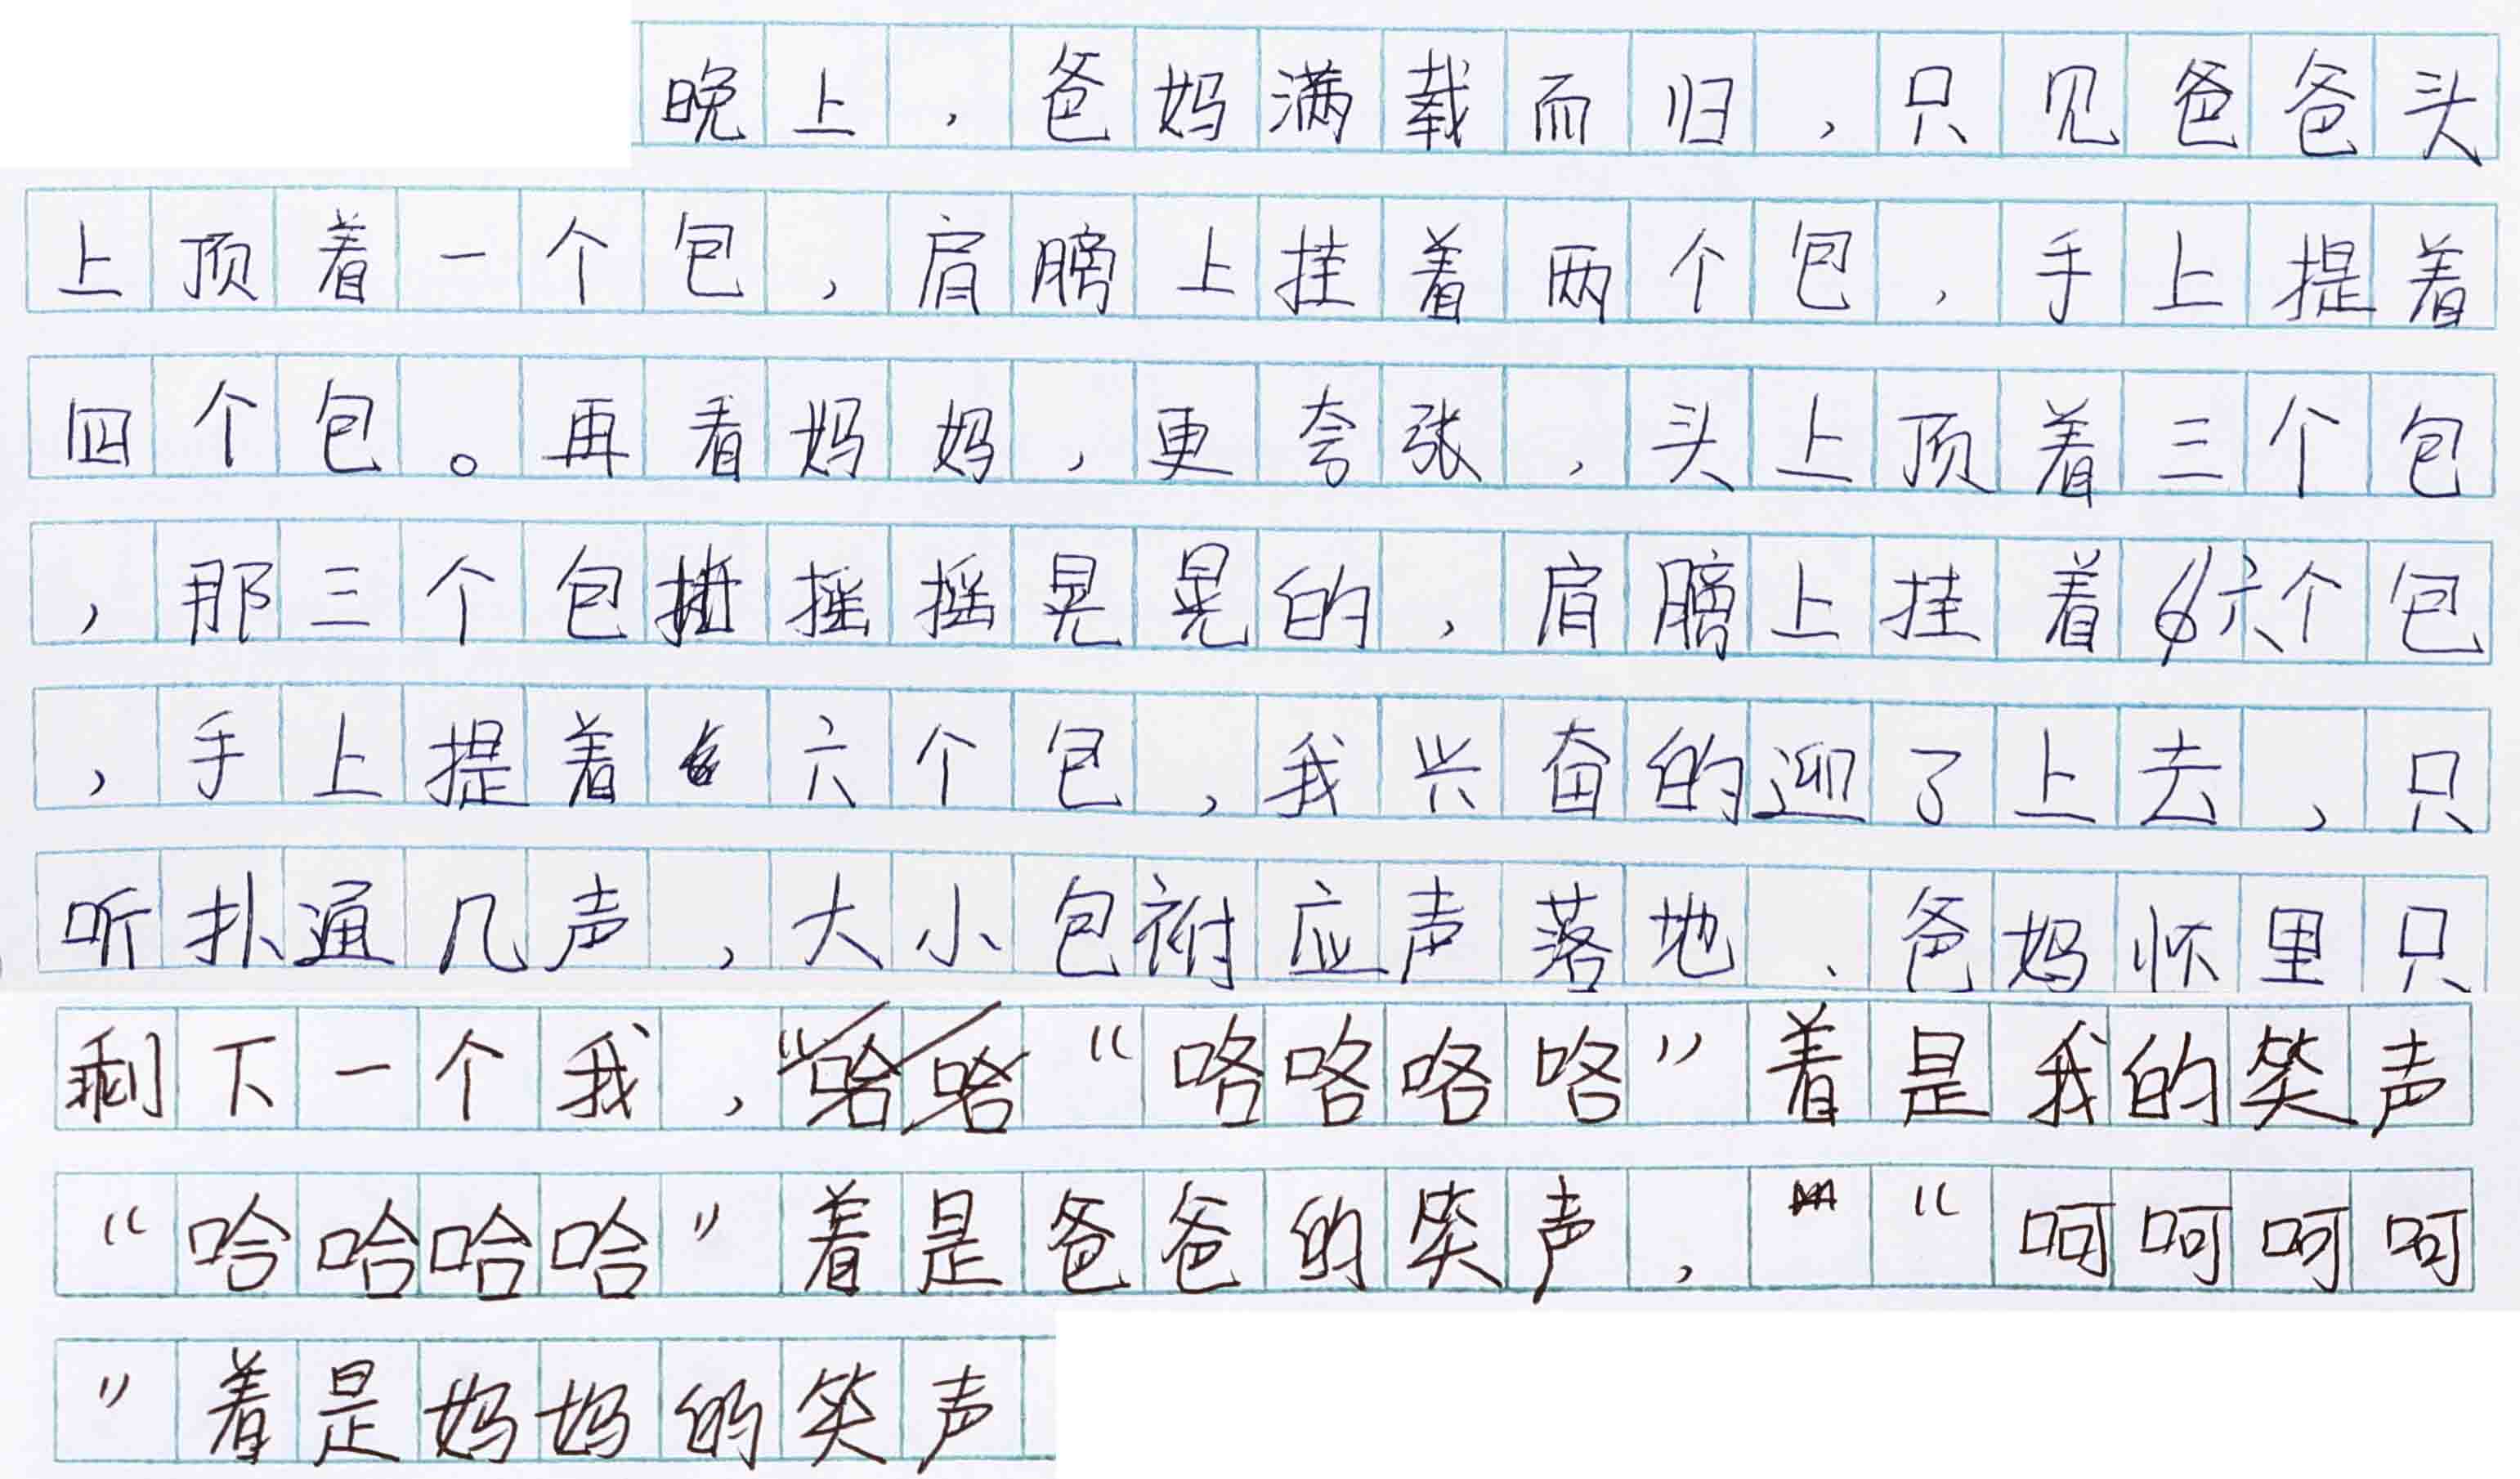 晚上，爸妈满载而归，只见爸爸头
上顶着一个包，肩膀上挂着两个包，手上提着
四个包。再看妈妈，更夸张，头上顶着三个包
，那三个包摇摇晃晃的，肩膀上挂着六个包
，手上提着六个包，我兴奋的迎了上去，只
听扑通几声，大小包袱应声落地、爸妈怀里只
剩下一个我，“咯咯咯咯”着是我的笑声
“哈哈哈哈”着是爸爸的笑声，“呵呵呵呵
”着是妈妈的笑声